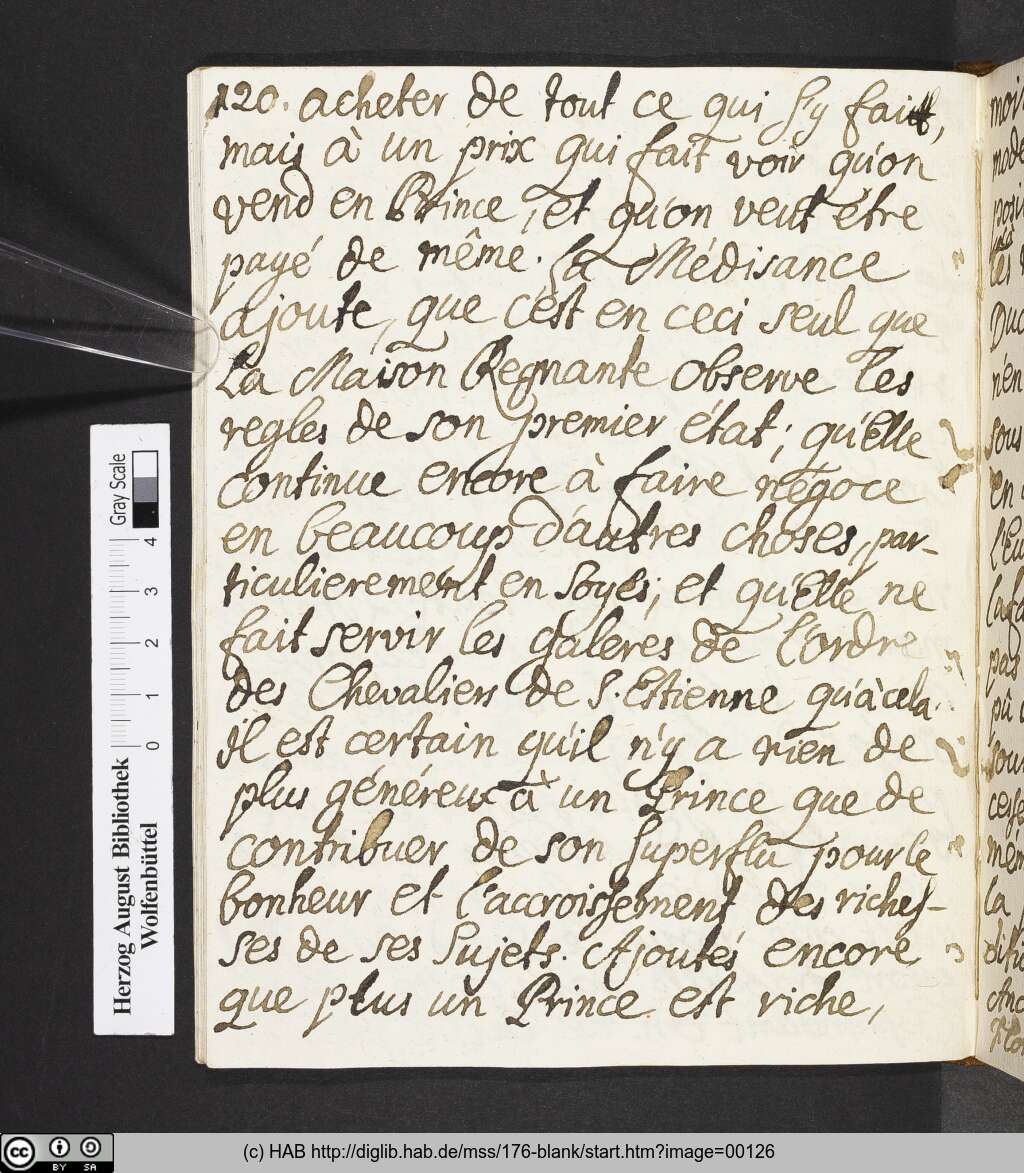 120. acheter de tout ce qui s'y fait,
mais à un prix qui fait voir qu'on
vend en Prince, et qu'on veut être
payé de même. La Médisance
ajoute, que c'est en ceci seul que
la Maison Regnante observe les
regles de son premier état; qu'Elle
continue encore à faire negoce
en beaucoup d'autres choses, par-
ticulierement en Soyes; et qu'Elle ne
fait servir les Galeres de l'ordre
des Chevaliers de S. Estienne qu'à cela.
Il est certain qu'il n'y a rien de
plus généreux à un Prince que de
contribuer de son superflu pour le
bonheur et l'accroissement des riches-
ses de ses sujets. Ajoutés encore
que plus un Prince est riche,
moi
mode
Duc
n'en
sous
en
pas
la
Gray Scale
4
3
2
1
0
Herzog August Bibliothek
Wolfenbüttel
cc BY SA
(c) HAB http://diglib.hab.de/mss/176-blank/start.htm?image=00126